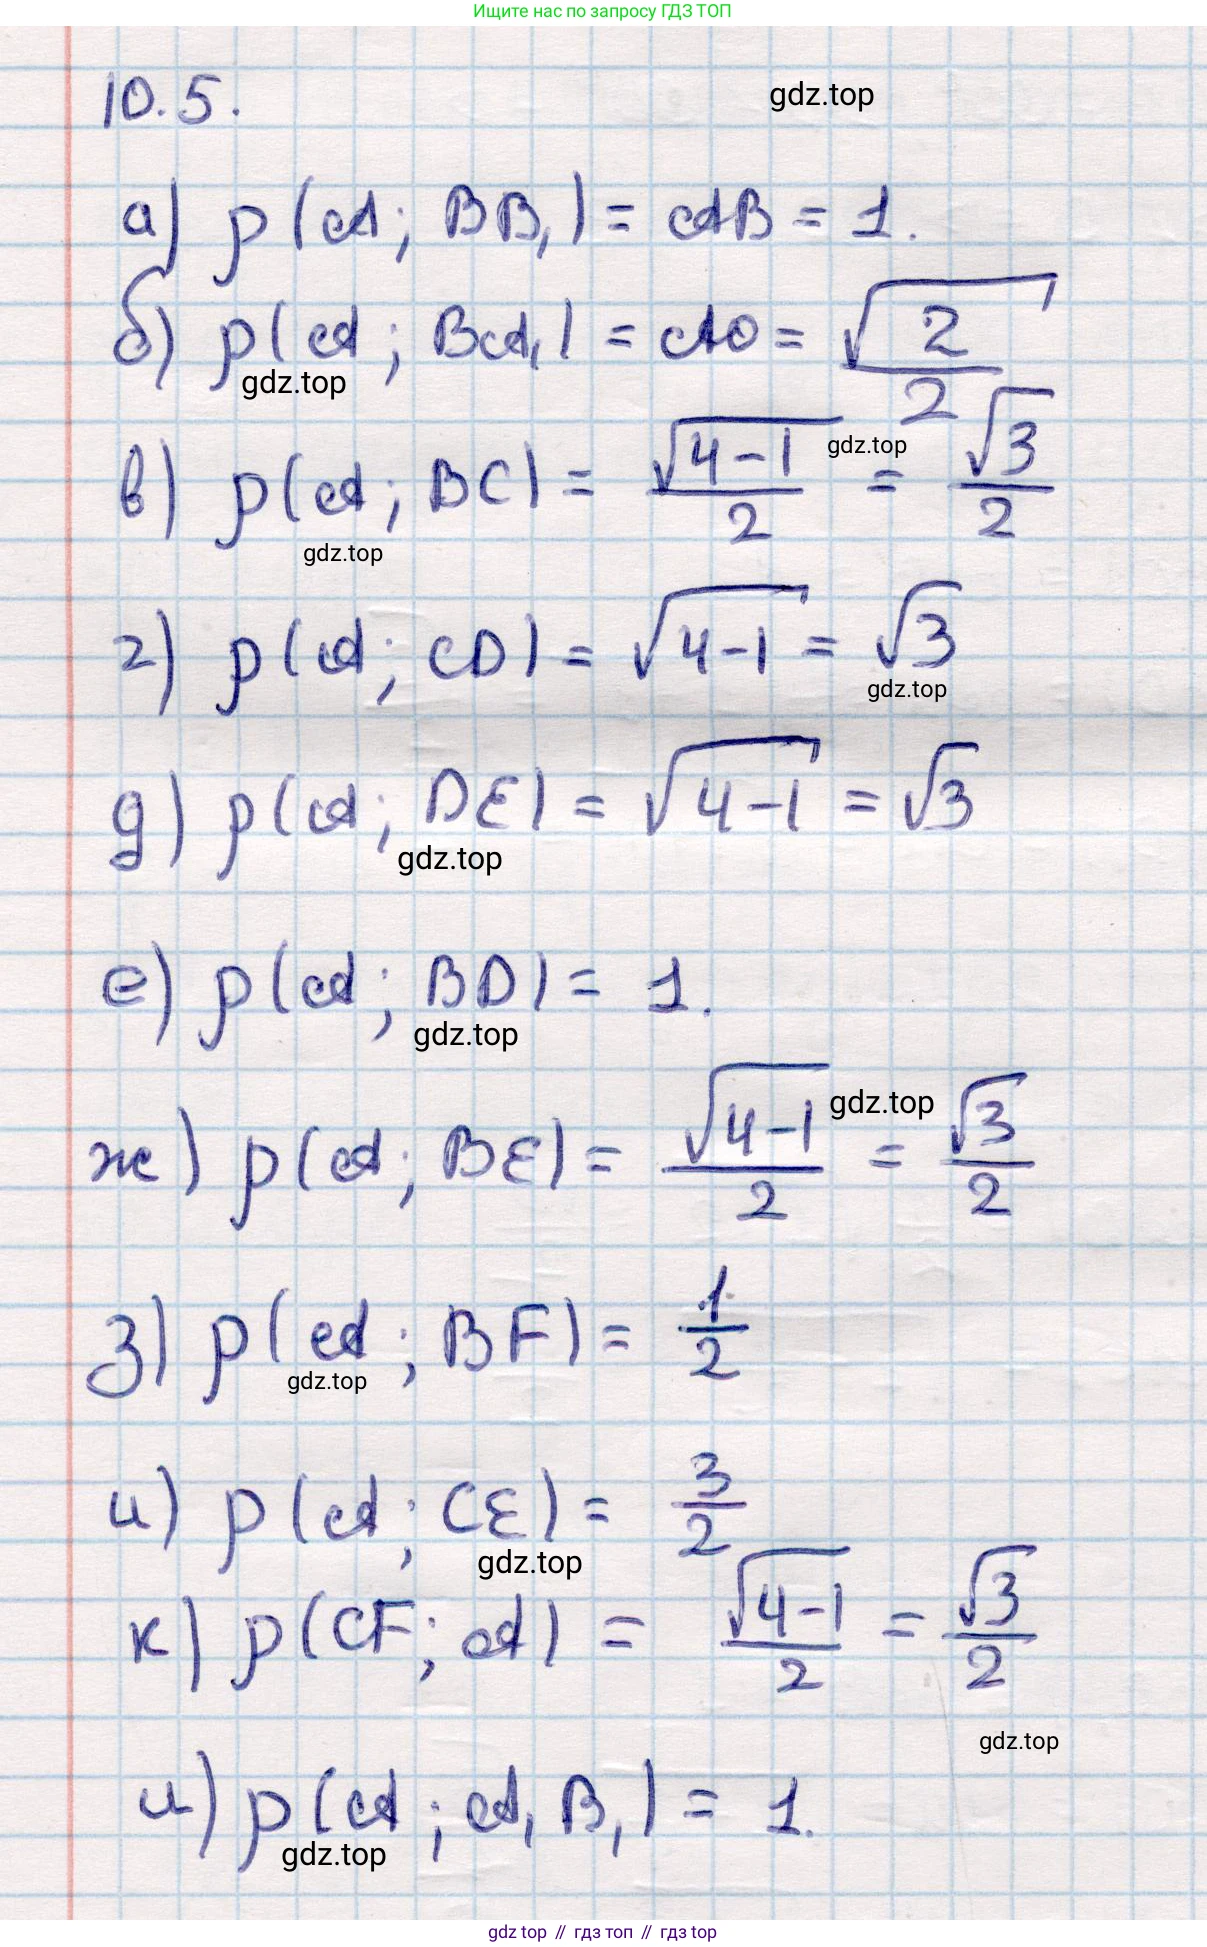 Ищите нас по запросу ГДЗ ТОП
10.5.
gdz.top
а) ρ(A; BB₁) = AB = 1.
б) ρ(A; BA₁) = AO = √2/2
gdz.top
в) ρ(A; BC) = √(4-1)/2 = √3/2
gdz.top
gdz.top
г) ρ(A; CD) = √(4-1) = √3
gdz.top
д) ρ(A; DE) = √(4-1) = √3
gdz.top
е) ρ(A; BD) = 1.
gdz.top
ж) ρ(A; BE) = √(4-1)/2 = √3/2
gdz.top
з) ρ(A; BF) = 1/2
gdz.top
и) ρ(A; CE) = 3/2
gdz.top
к) ρ(CF; A) = √(4-1)/2 = √3/2
gdz.top
и) ρ(A; A₁B₁) = 1.
gdz.top
gdz top // гдз топ // гдз top